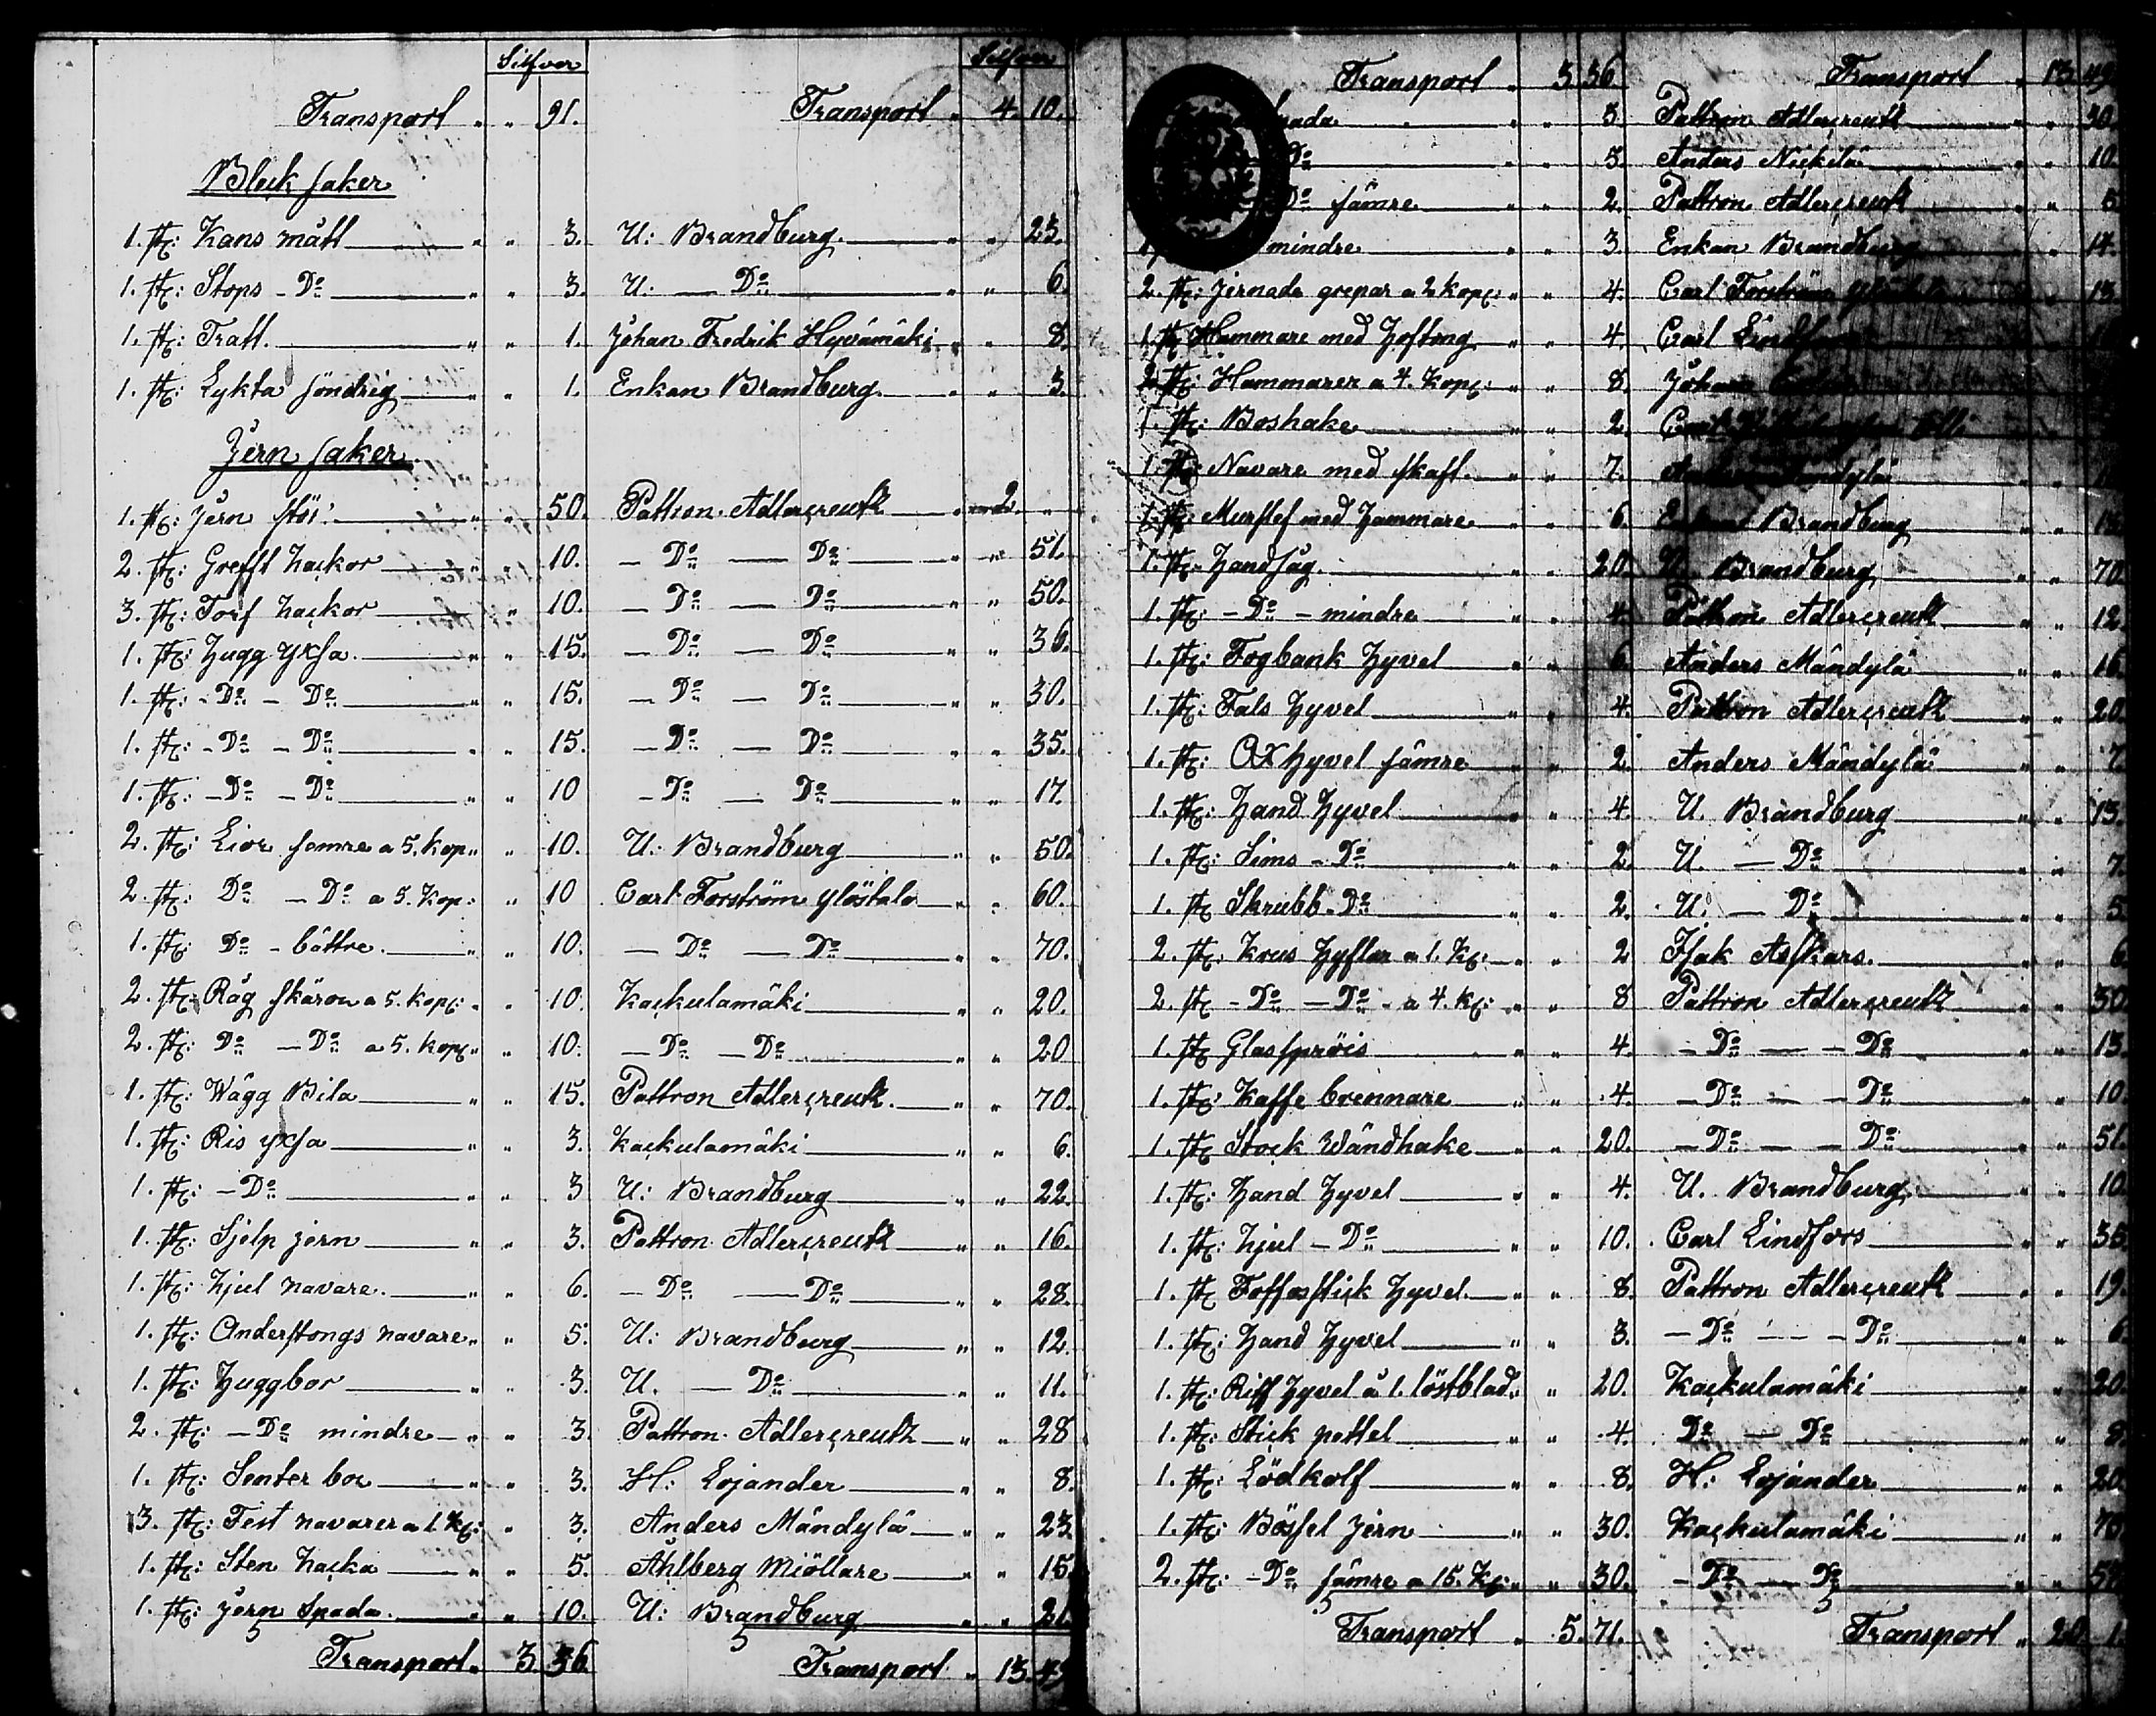 Silfver Silfver
Transport " " 91. Transport " 4. 10.
Bleck saker
1. st: Kans mått " " 3. U: Brandburg " " 23.
1. st: Stops - Do " " 3. U: — Do " " 6.
1. st: Tratt. " " 1. Johan Fredrik Hyvämäki " " 8.
1. st: Lykta söndrig " " 1. Enkan Brandburg " " 3.
Jern saker
1. st: Jern stör " " 50. Pattron Adlercreutz " 2. "
2. st: Grefft hackor " " 10. — Do — Do " " 51.
3. st: Torf hackor " " 10. — Do — Do " " 50.
1. st: Hugg yxsa " " 15. — Do — Do " " 36.
1. st: - Do - Do " " 15. — Do — Do " " 30.
1. st: - Do - Do " " 15. — Do — Do " " 35.
1. st: - Do - Do " " 10 - Do — Do " " 17.
2. st: Lior semre a 5. kop " " 10. U: Brandburg " " 50.
2. st: Do — Do a 5. kop: " 10 Carl Forström Ylöstalo " " 60.
1. st: Do - bättre " " 10. — Do — Do " " 70.
2. st: Råg skäror a 5. kop: " " 10. Kackulamäki " " 20.
2. st: Do — Do a 5. kop: " " 10. — Do — Do " " 20
1. st: Wägg Bila " " 15. Pattron Adlercreutz " " 70.
1. st: Ris yxsa " " 3. Kackulamäki " " 6.
1. st: - Do " " 3 U: Brandburg " " 22.
1. st: Sjelp jern " " 3. Pattron Adlercreutz " " 16.
1. st: Hjul navare " " 6. — Do — Do " " 28.
1. st: Anderstongs navare " " 5. U: Brandburg " " 12.
1. st: Huggbor " " 3. U. — Do " " 11.
2. st: — Do mindre " " 3. Pattron Adlercreutz " " 28
1. st: Senter bor " " 3. H: Lojander " " 8.
3. st: Fest navarer a 1. kp: " 3. Anders Mändylä " " 23
1. st: Sten hacka " " 5. Åhlberg Miöllare " " 15.
1. st: Jern Spada " " 10. U: Brandburg " " 21.
Transport " 3. 36 Transport " 13. 49
Transport " 3. 36. Transport " 13. 49
spada " " 3. Pattron Adlercreutz " " 20.
Do " " 3. Anders Nickilä " " 10.
Do sämre " " 2. Pattron Adlercreutz " " 5.
mindre " " 3. Enkan Brandburg " " 14.
2. st: Jernade grepar a 2 kop: " " 4. Carl Forström " " 13.
1. st: Hammare med hoftong " " 4. Carl Lindfors
2. st: Hammarer a 4. kop: " " 8. Johan
1. st: Boshake " " 2.
1. st: Navare med skaft " " 7. Anders Mändylä
1. st: Murslef med hammare " " 6. Enkan Brandburg
1. st: Handsåg " " 20. U. Brandburg " " 70.
1. st: - Do - mindre " " 4. Pattron Adlercreutz " " 12.
1. st: Fogbank hyvel " " 6. Anders Mändylä " " 16.
1. st: Fals hyvel " " 4. Pattron Adlercreutz " " 20.
1. st: Ox hyvel sämre " " 2. Anders Mändylä " " 7.
1. st: Hand hyvel " " 4. U. Brandburg " " 13.
1. st: Sims - Do " " 2. U. — Do " " 7.
1. st: Skrubb - Do " " 2. U. — Do " " 5.
2. st: Krus hyflar a 1. kp: " " 2 Isak Asskars " " 6.
2. st: - Do — Do - a 4. kp: " " 8 Pattron Adlercreutz " " 30
1. st: Glasspröis " " 4. — Do — - Do " " 13.
1. st: Kaffe brennare " " 4. — Do — - Do " " 10
1. st: Stock Wändhake " " 20. — Do — - Do " " 51.
1. st: Hand hyvel " " 4. U. Brandburg " " 10.
1. st: Hjul - Do " " 10. Carl Lindfors " " 35.
1. st: Foffosstick hyvel " " 8. Pattron Adlercreutz " " 19.
1. st: Hand hyvel " " 3. — Do — - Do " " 6.
1. st: Riff hyvel å 1. löstblad " " 20. Kackulamäki " " 20.
1. st: Stick pettel " " 4. Do — Do " " 8.
1. st: Lödkolf " " 8. H: Lojander " " 20.
1. st: Bössel jern " " 30. Kackulamäki " " 70.
2. st: - Do sämre a 15. kp: " " 30. — Do — Do " "
Transport " 5. 71. Transport " 20. 1.